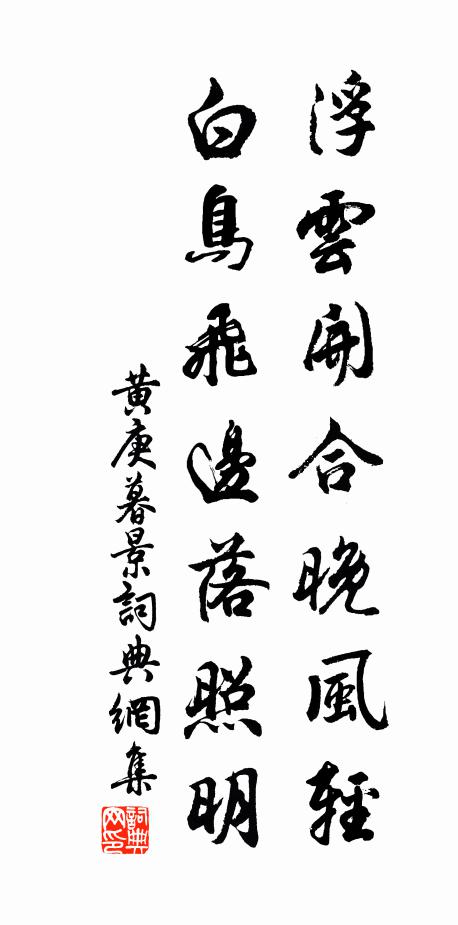 浮雲開合晚風輕
白鳥飛邊落照明
黄庚暮景詞典網集
詞典网印